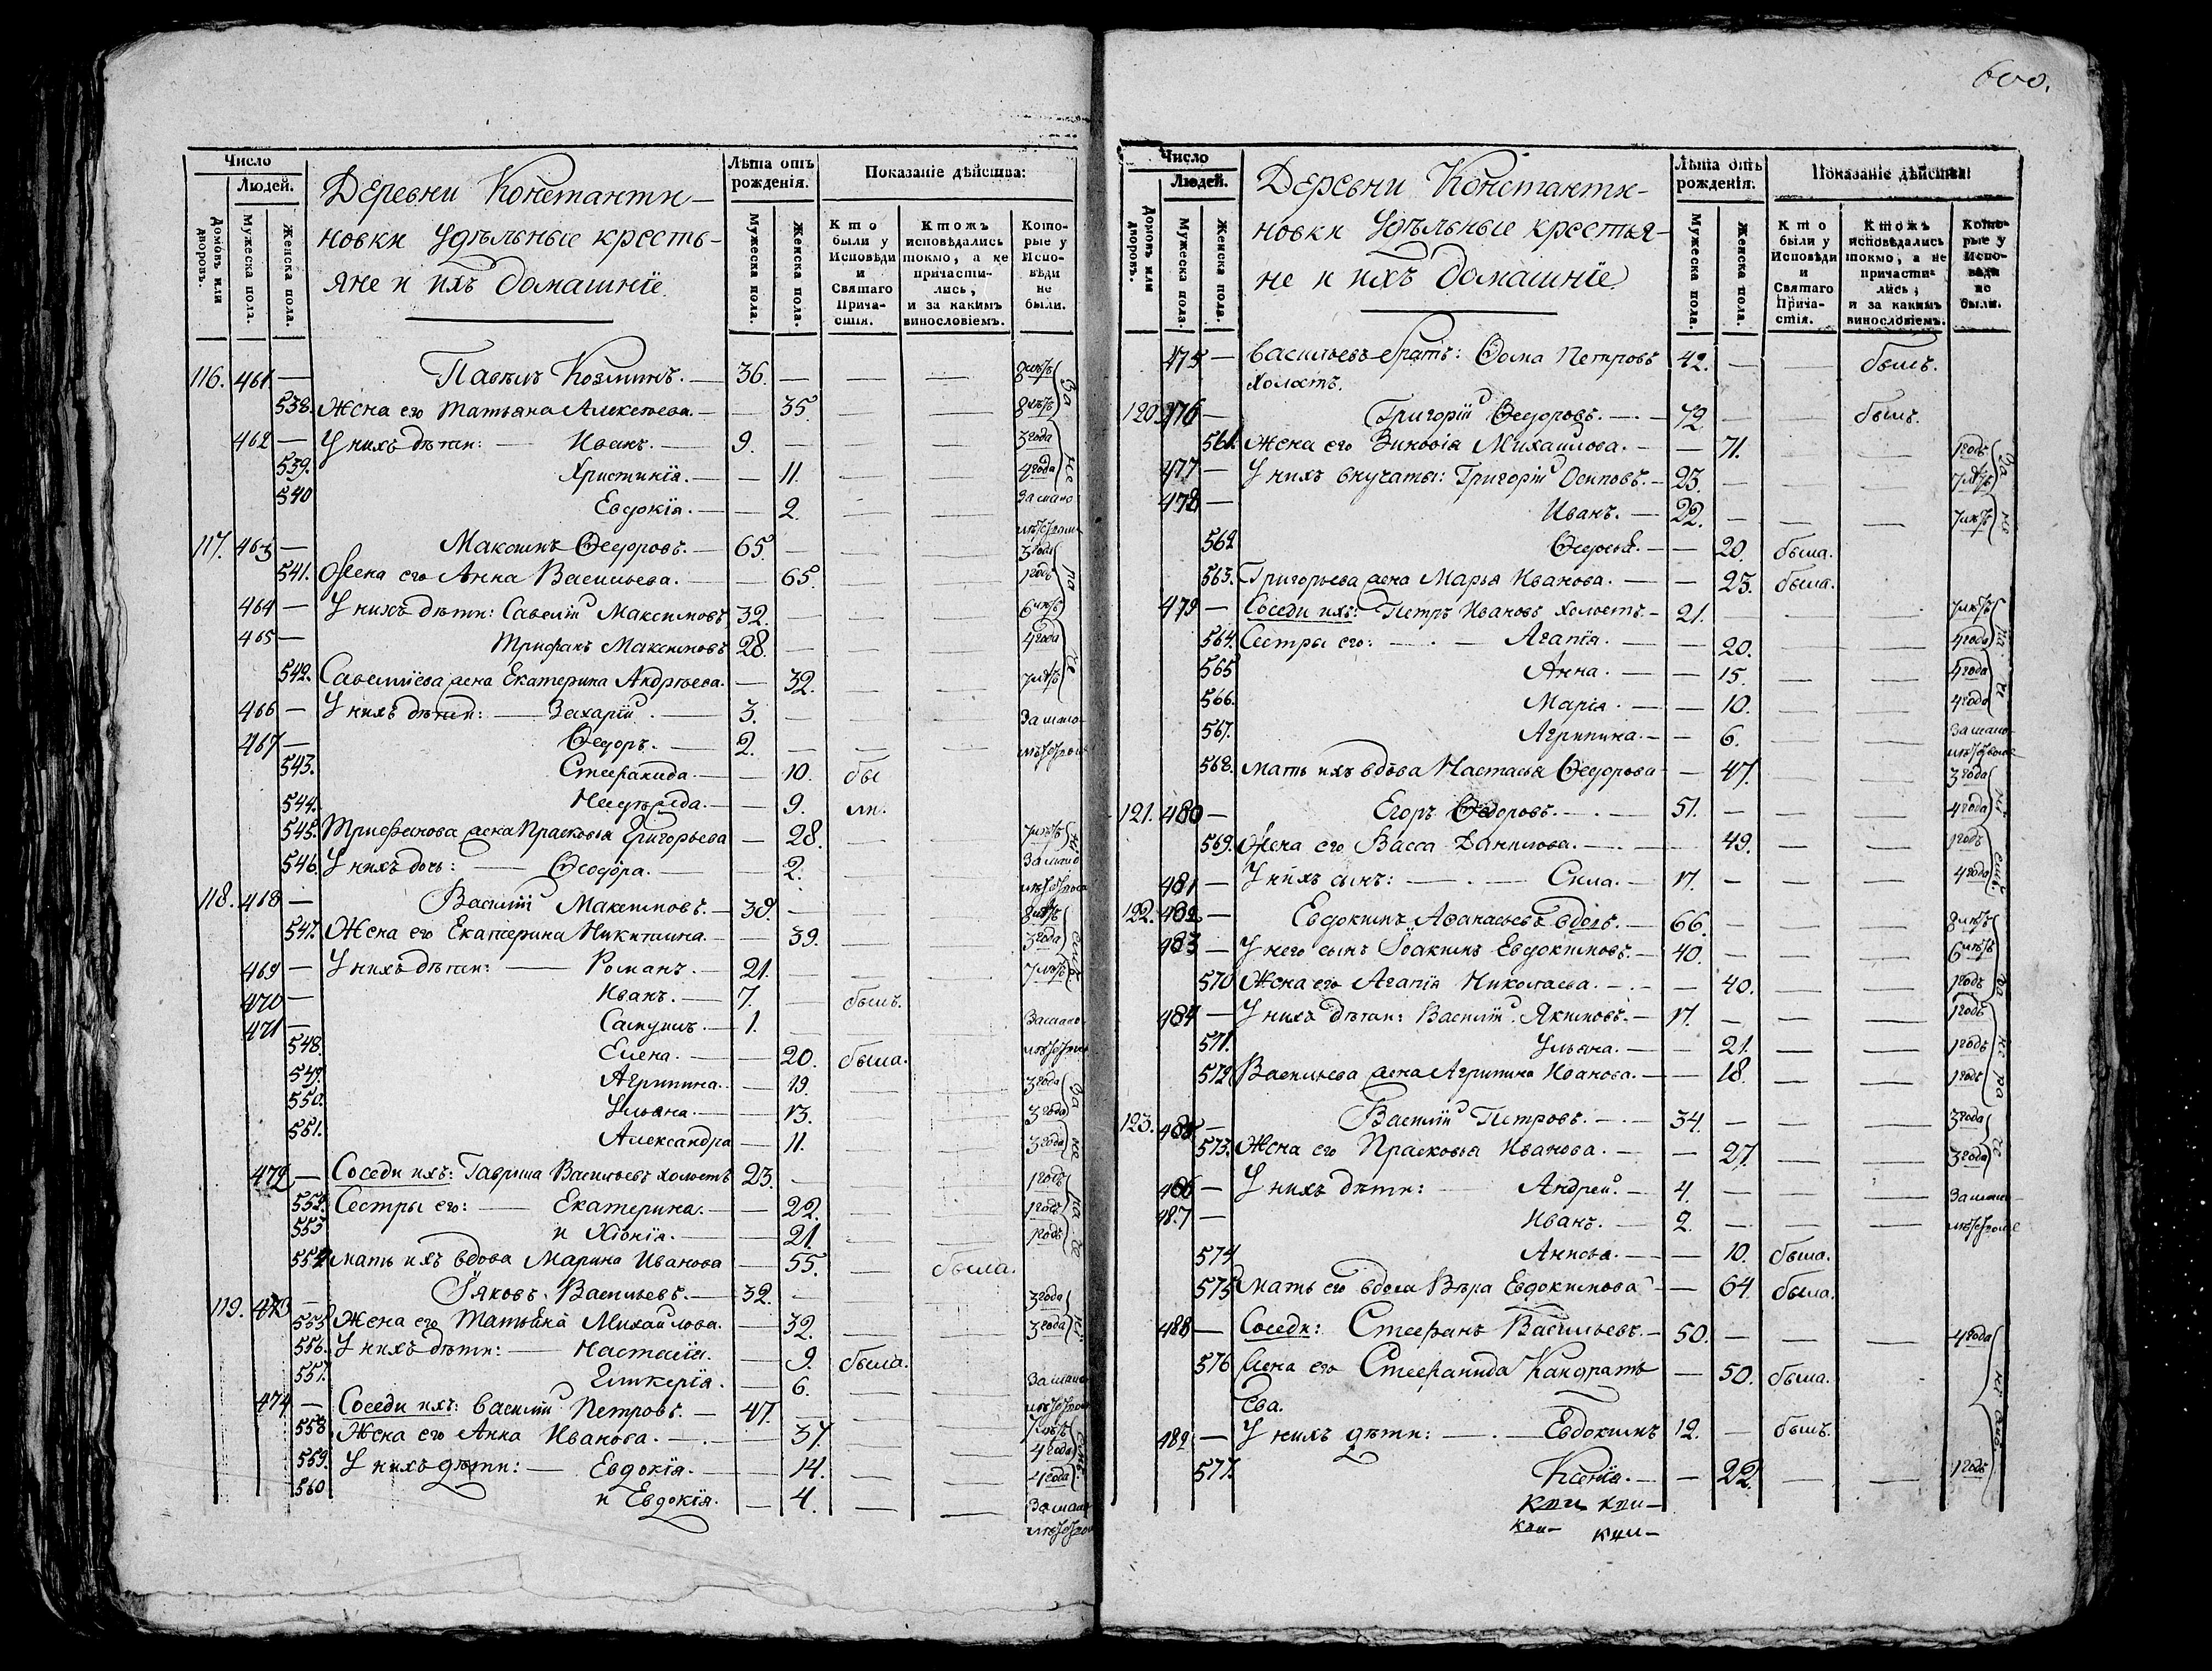 600.
Число
Людей.
Домовъ или дворовъ.
Мужеска пола.
Женска пола.
Деревни Константи-
новки Удѣльные кресть-
яне и ихъ домашніе
Лѣта отъ рожденія.
Мужеска пола.
Женска пола.
Показаніе дѣйства:
Кто были у Исповѣди и Святаго Прича-стія.
Ктожъ исповѣдались токмо, а не причасти-лись, и за какимъ винословіемъ.
Кото-рые у Испо-вѣди не были.
116. 461. — Павелъ Козминъ. — 36. — — — 8 лѣтъ
538. Жена его Татьяна Алексѣева. — — 35. — — 8 лѣтъ
462 — У нихъ дѣти: — Иванъ. — 9. — — — 3 года
539. Христинія. — — 11. — — 4 года
540 Евдокія. — — 2. — — За мало-
лѣтствомъ
117. 463 — Максимъ Ѳедоровъ. — 65. — — — 3 года
541. Жена его Анна Васильева. — — 65. — — 1 годъ
464 — У нихъ дѣти: Савелій Максимовъ 32. — — — 6 лѣтъ
465 — Трифанъ Максимовъ 28. — — — 4 года
542. Савеліева жена Екатерина Андрѣева. — 32. — — 7 лѣтъ
466 — У нихъ дѣти: — Захарій. — 3. — — — За мало-
467 — Ѳедоръ. — 2. — — — лѣтствомъ
543. Стефанида. — — 10. бы
544. — — 9. ли.
545. Трифанова жена Прасковья Григорьева — 28. — — 7 лѣтъ
546. У нихъ дочь: — Ѳеодора. — — 2. — — За мало
лѣтствомъ
118. 468 — Василій Максимовъ. — 38. — — — 8 лѣтъ
547. Жена его Екатерина Никитина. — — 39. — — 3 года
469 — У нихъ дѣти: — Романъ. — 21. — — — 7 лѣтъ
470 — Иванъ. — 7. — былъ.
471 — Самуилъ. — 1. — — — За мало-
548. Елена. — — 20. была. лѣтствомъ
549. Агрипина. — — 19. — — 3 года
550. Ульяна. — — 13. — — 3 года
551. Александра — 11. — — 3 года
472 — Соседи ихъ: Гаврила Васильевъ холостъ 23. — — — 1 годъ
552. Сестры его: — Екатерина. — — 22. — — 1 годъ
553 и Хіонія. — — 21. — — 1 годъ
554 мать ихъ вдова Марина Иванова — 55. — была.
119. 473 — Іяковъ Васильевъ. — 32. — — — 3 года
555 Жена его Татьяна Михайлова. — 32. — — 3 года
556. У нихъ дѣти: — Настасія. — 9. была.
557. Гликерія. — 6. — — За мало
474 — Соседи ихъ: Василій Петровъ. — 47. — — — лѣтствомъ
558 Жена его Анна Иванова. — — 37. — — 7 лѣтъ
559. У нихъ дѣти: — Евдокія. — — 14. — — 4 года
560 и Евдокія. — 4. — — 4 года
За мало
лѣтствомъ
Число
Людей.
Домовъ или дворовъ.
Мужеска пола.
Женска пола.
Деревни Константи-
новки Удѣльные крестья-
не и ихъ домашніе
Лѣта отъ рожденія.
Мужеска пола.
Женска пола.
Показаніе дѣйства:
Кто были у Исповѣди и Святаго Прича-стія.
Ктожъ исповѣдались токмо, а не причасти-лись, и за какимъ винословіемъ.
Кото-рые у Испо-вѣди не были.
475 — Васильевъ братъ: Ѳома Петровъ 42. — — былъ.
холостъ.
120. 476 — Григорій Ѳедоровъ. — 72. — — былъ.
561. Жена его Зиновія Михаилова. — — 71. — — 1 годъ
477 — У нихъ внучаты: Григорій Осиповъ. — 23. — — — 7 лѣтъ
478 — Иванъ. — 22. — — — 7 лѣтъ
562 Ѳедосья. — — 20. была.
563. Григорьева жена Марья Иванова. — — 23. была.
479 — Соседи ихъ: Петръ Ивановъ холостъ. — 21. — — — 7 лѣтъ
564. Сестры его: — Агапія. — — 20. — — 4 года
565 Анна. — — 15. — — 4 года
566. Марія. — — 10. — — 4 года
567. Агрипина. — — 6. — — За мало-
лѣтствомъ
568. мать ихъ вдова Настасья Ѳедорова — 47. — — 3 года
121. 480 — Егоръ Ѳедоровъ. — 51. — — — 4 года
569. Жена его Васса Данилова. — — 49. — — 1 годъ
481 — У нихъ сынъ: — Сила. — 17. — — — 4 года
122. 482 — Евдокимъ Аѳанасьевъ вдовъ. — 66. — — — 8 лѣтъ
483 — У него сынъ Іоакимъ Евдокимовъ. — 40. — — — 6 лѣтъ
570 Жена его Агапія Николаева. — — 40. — — 1 годъ
484 — У нихъ дѣти: Василій Якимовъ. — 17. — — — 1 годъ
571. Ульяна. — — 21. — — 1 годъ
572 Васильева жена Агрипина Иванова. — — 18. — — 1 годъ
123. 485 — Василій Петровъ. — 34. — — — 3 года
573. Жена его Прасковья Иванова. — — 27. — — 3 года
486 — У нихъ дѣти: — Андрей. — 4. — — — За мало-
487 — Иванъ. — 2. — — — лѣтствомъ
574 Анисья. — — 10. была.
575 мать его вдова Вѣра Евдокимова — — 64. была.
488 — Соседи: Стефанъ Васильевъ. — 50. — — — 4 года
576 Жена его Стефанида Кандрать — 50. была.
ева.
489 — У нихъ дѣти: — Евдокимъ 12. — былъ.
577. Ксенія. — — 22. — — 1 годъ